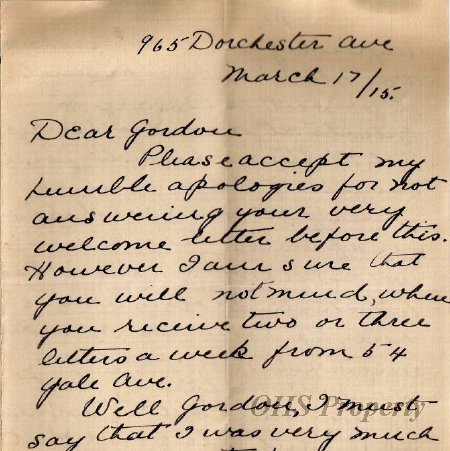 965 Dorchester Ave
March 17/15.
Dear Gordon
Please accept my
humble apologies for not
answering your very
welcome letter before this.
However I am sure that
you will not mind, when
you receive two or three
letters a week from 54
Yale Ave.
Well Gordon, I must
say that I was very much
OHS Property